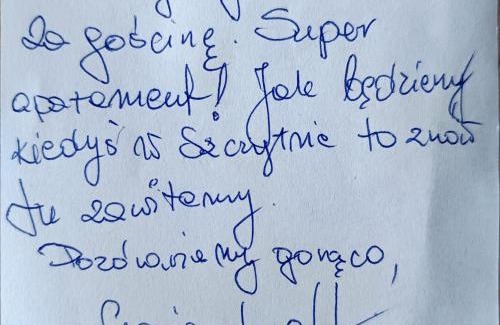 za gościnę. Super
apatament! Jak będziemy
kiedyś w Szczytnie to znów
tu zawitamy.
Pozdrawiamy gorąco,